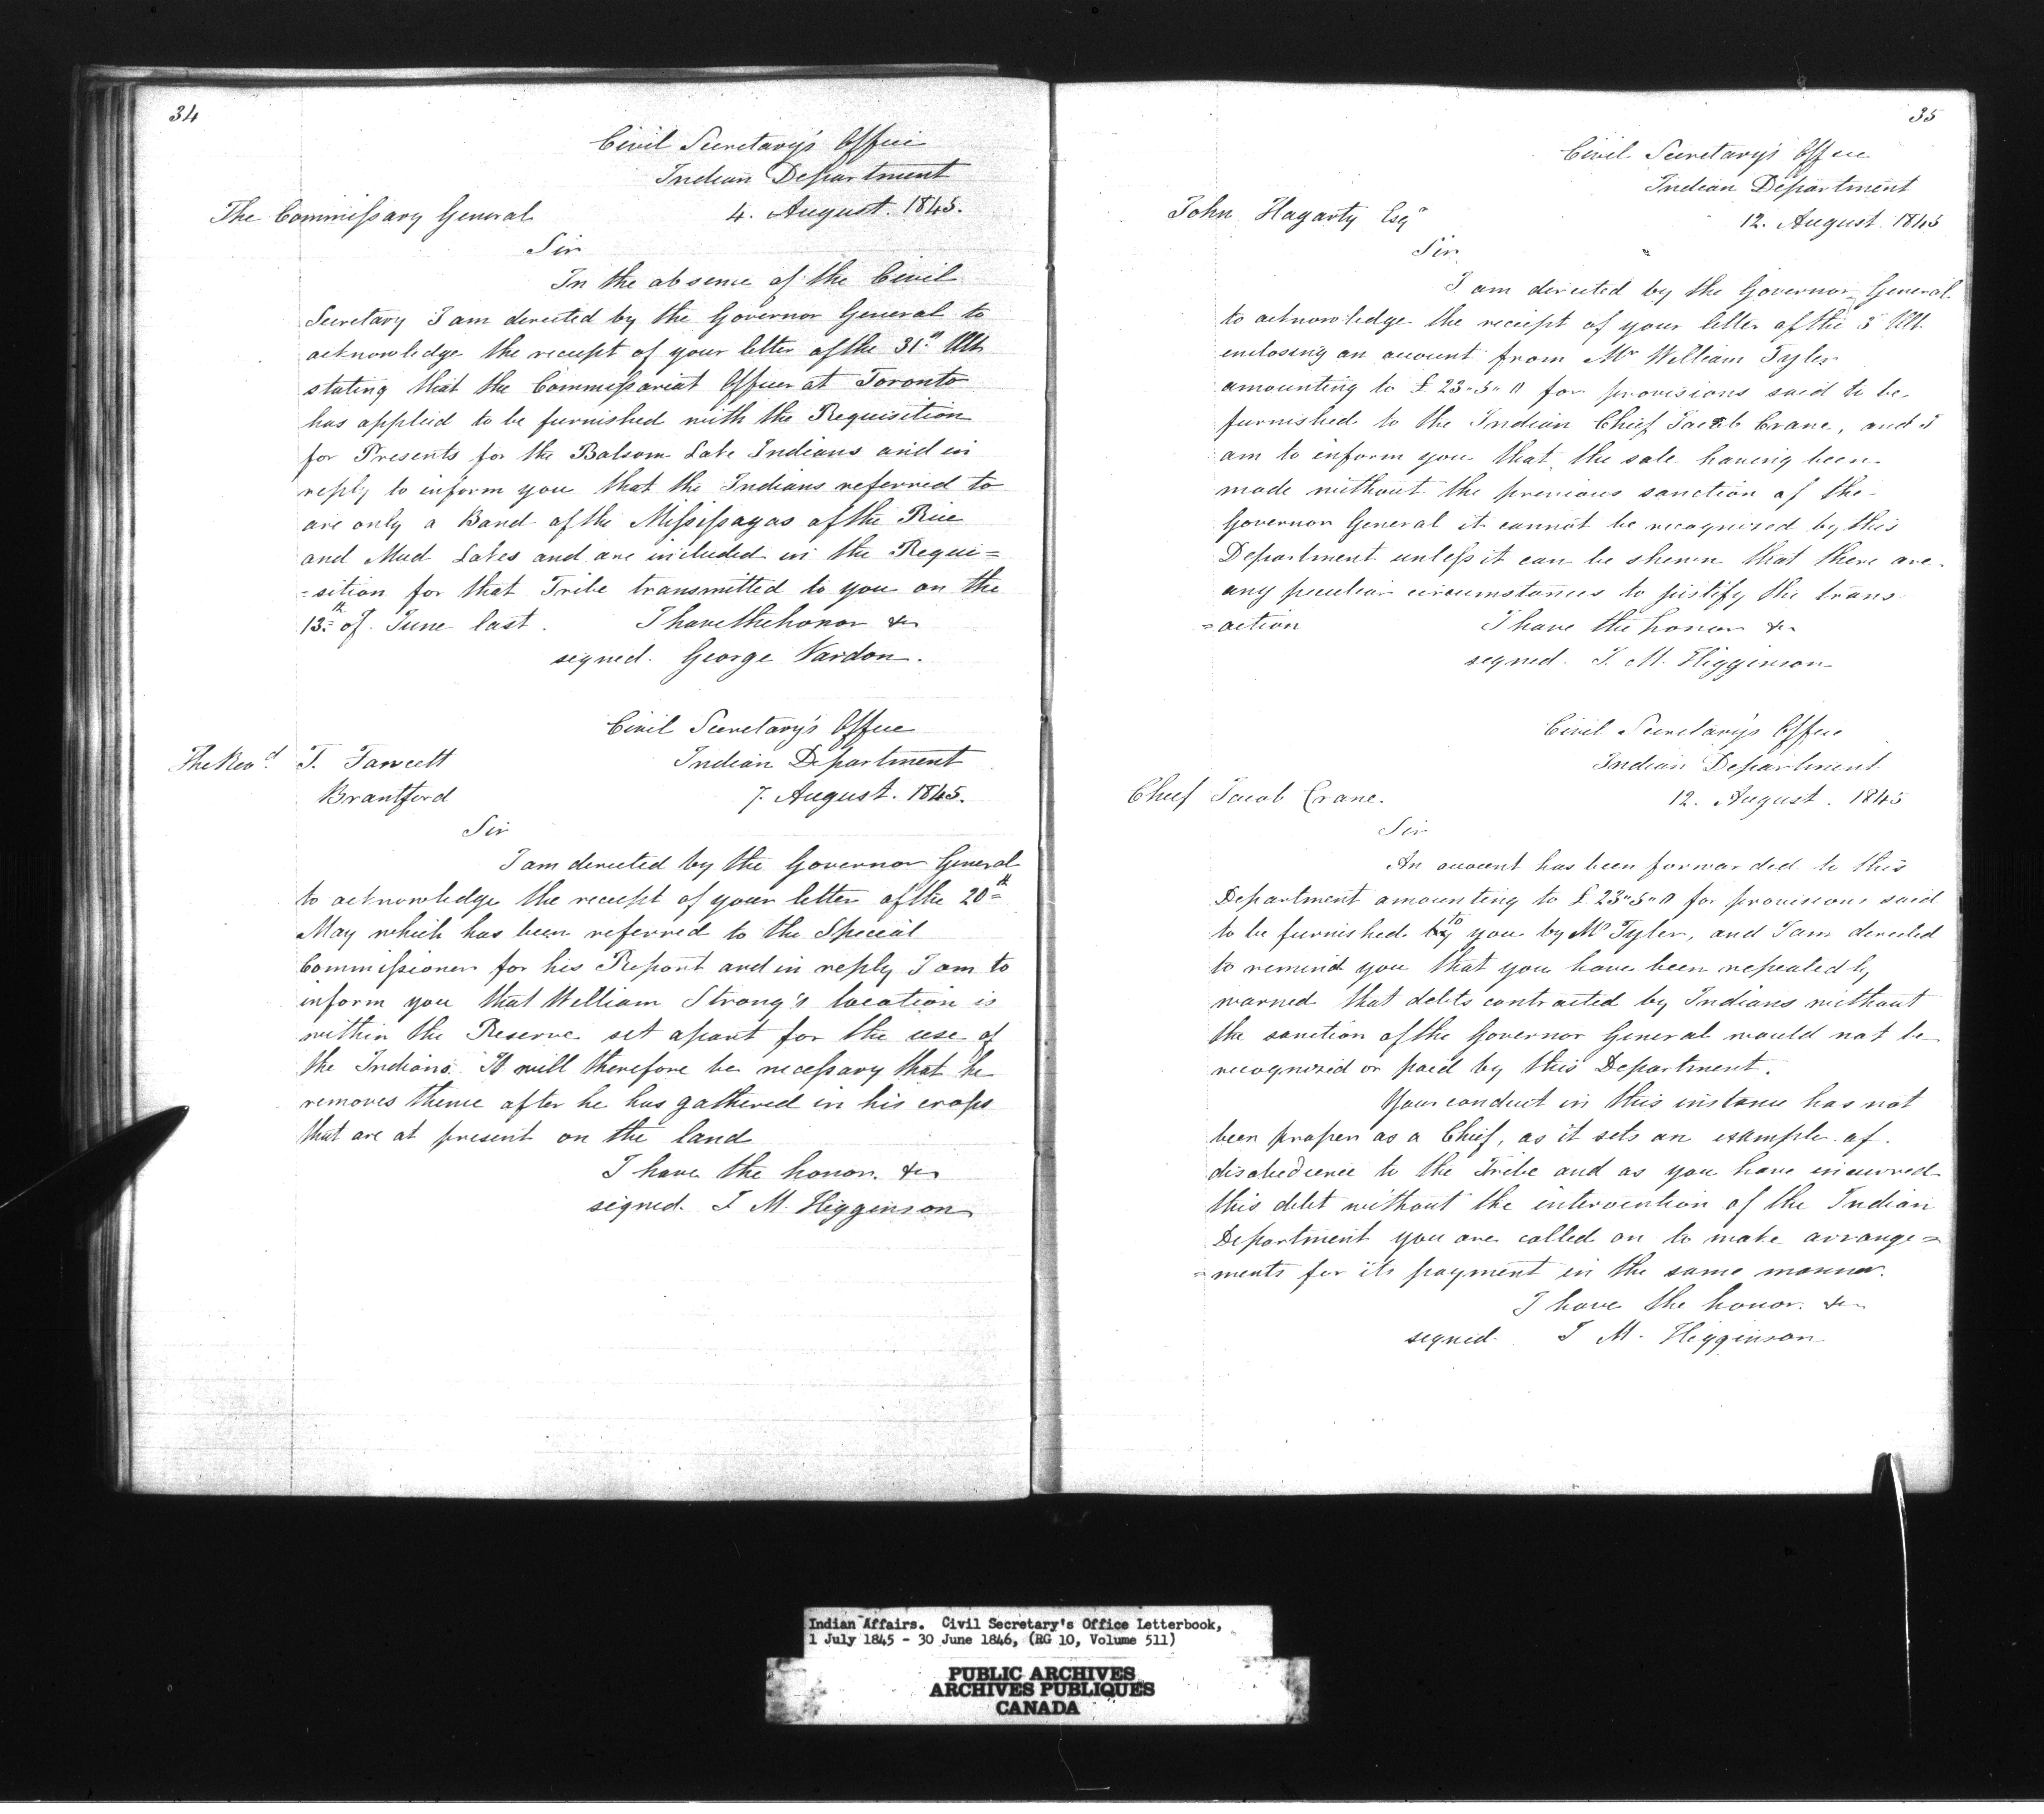 34
Civil Secretary's Office
Indian Department
The Commissary General 4. August. 1845.
Sir
In the absence of the Civil
Secretary I am directed by the Governor General to
acknowledge the receipt of your letter of the 31st Ulto
stating that the Commissariat Officer at Toronto
has applied to be furnished with the Requisition
for Presents for the Balsom Lake Indians and in
reply to inform you that the Indians referred to
are only a Band of the Mississagas of the Rice
and Mud Lakes and are included in the Requi=
=sition for that Tribe transmitted to you on the
13th of June last. I have the honor &c
signed. George Vardon.
Civil Secretary's Office
The Revd. T. Fawcett Indian Department
Brantford 7. August. 1845.
Sir
I am directed by the Governor General
to acknowledge the receipt of your letter of the 20th
May which has been referred to the Special
Commissioner for his Report and in reply I am to
inform you that William Strong's location is
within the Reserve set apart for the use of
the Indians. It will therefore be necessary that he
removes thence after he has gathered in his crops
that are at present on the land
I have the honor. &c
signed. J. M. Higginson
35
Civil Secretary's Office
Indian Department
John Hagarty Esqr 12. August. 1845
Sir
I am directed by the Governor General
to acknowledge the receipt of your letter of the 5 Ult.
enclosing an account from Mr William Tyler
amounting to £23"5"0 for provisions said to be
furnished to the Indian Chief Jacob Crane, and I
am to inform you that the sale having been
made without the previous sanction of the
Governor General it cannot be recognized by this
Department unless it can be shewn that there are
any peculiar circumstances to justify the trans
=action I have the honor &c
signed. J. M. Higginson
Civil Secretary's Office
Indian Department
Chief Jacob Crane. 12. August. 1845
Sir
An account has been forwarded to this
Department amounting to £23"5"0 for provisions said
to be furnished to you by Mr Tyler, and I am directed
to remind you that you have been repeatedly
warned that debts contracted by Indians without
the sanction of the Governor General would not be
recognized or paid by this Department.
Your conduct in this instance has not
been proper as a Chief, as it sets an example of
disobedience to the Tribe and as you have incurred
this debt without the intervention of the Indian
Department you are called on to make arrange=
=ments for its payment in the same manner.
I have the honor. &c
signed. J M. Higginson
Indian Affairs. Civil Secretary's Office Letterbook,
1 July 1845 - 30 June 1846, (RG 10, Volume 511)
PUBLIC ARCHIVES
ARCHIVES PUBLIQUES
CANADA